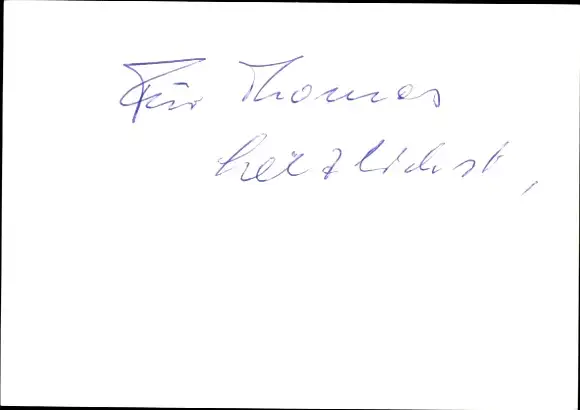 Für Thomas
herzlichst,